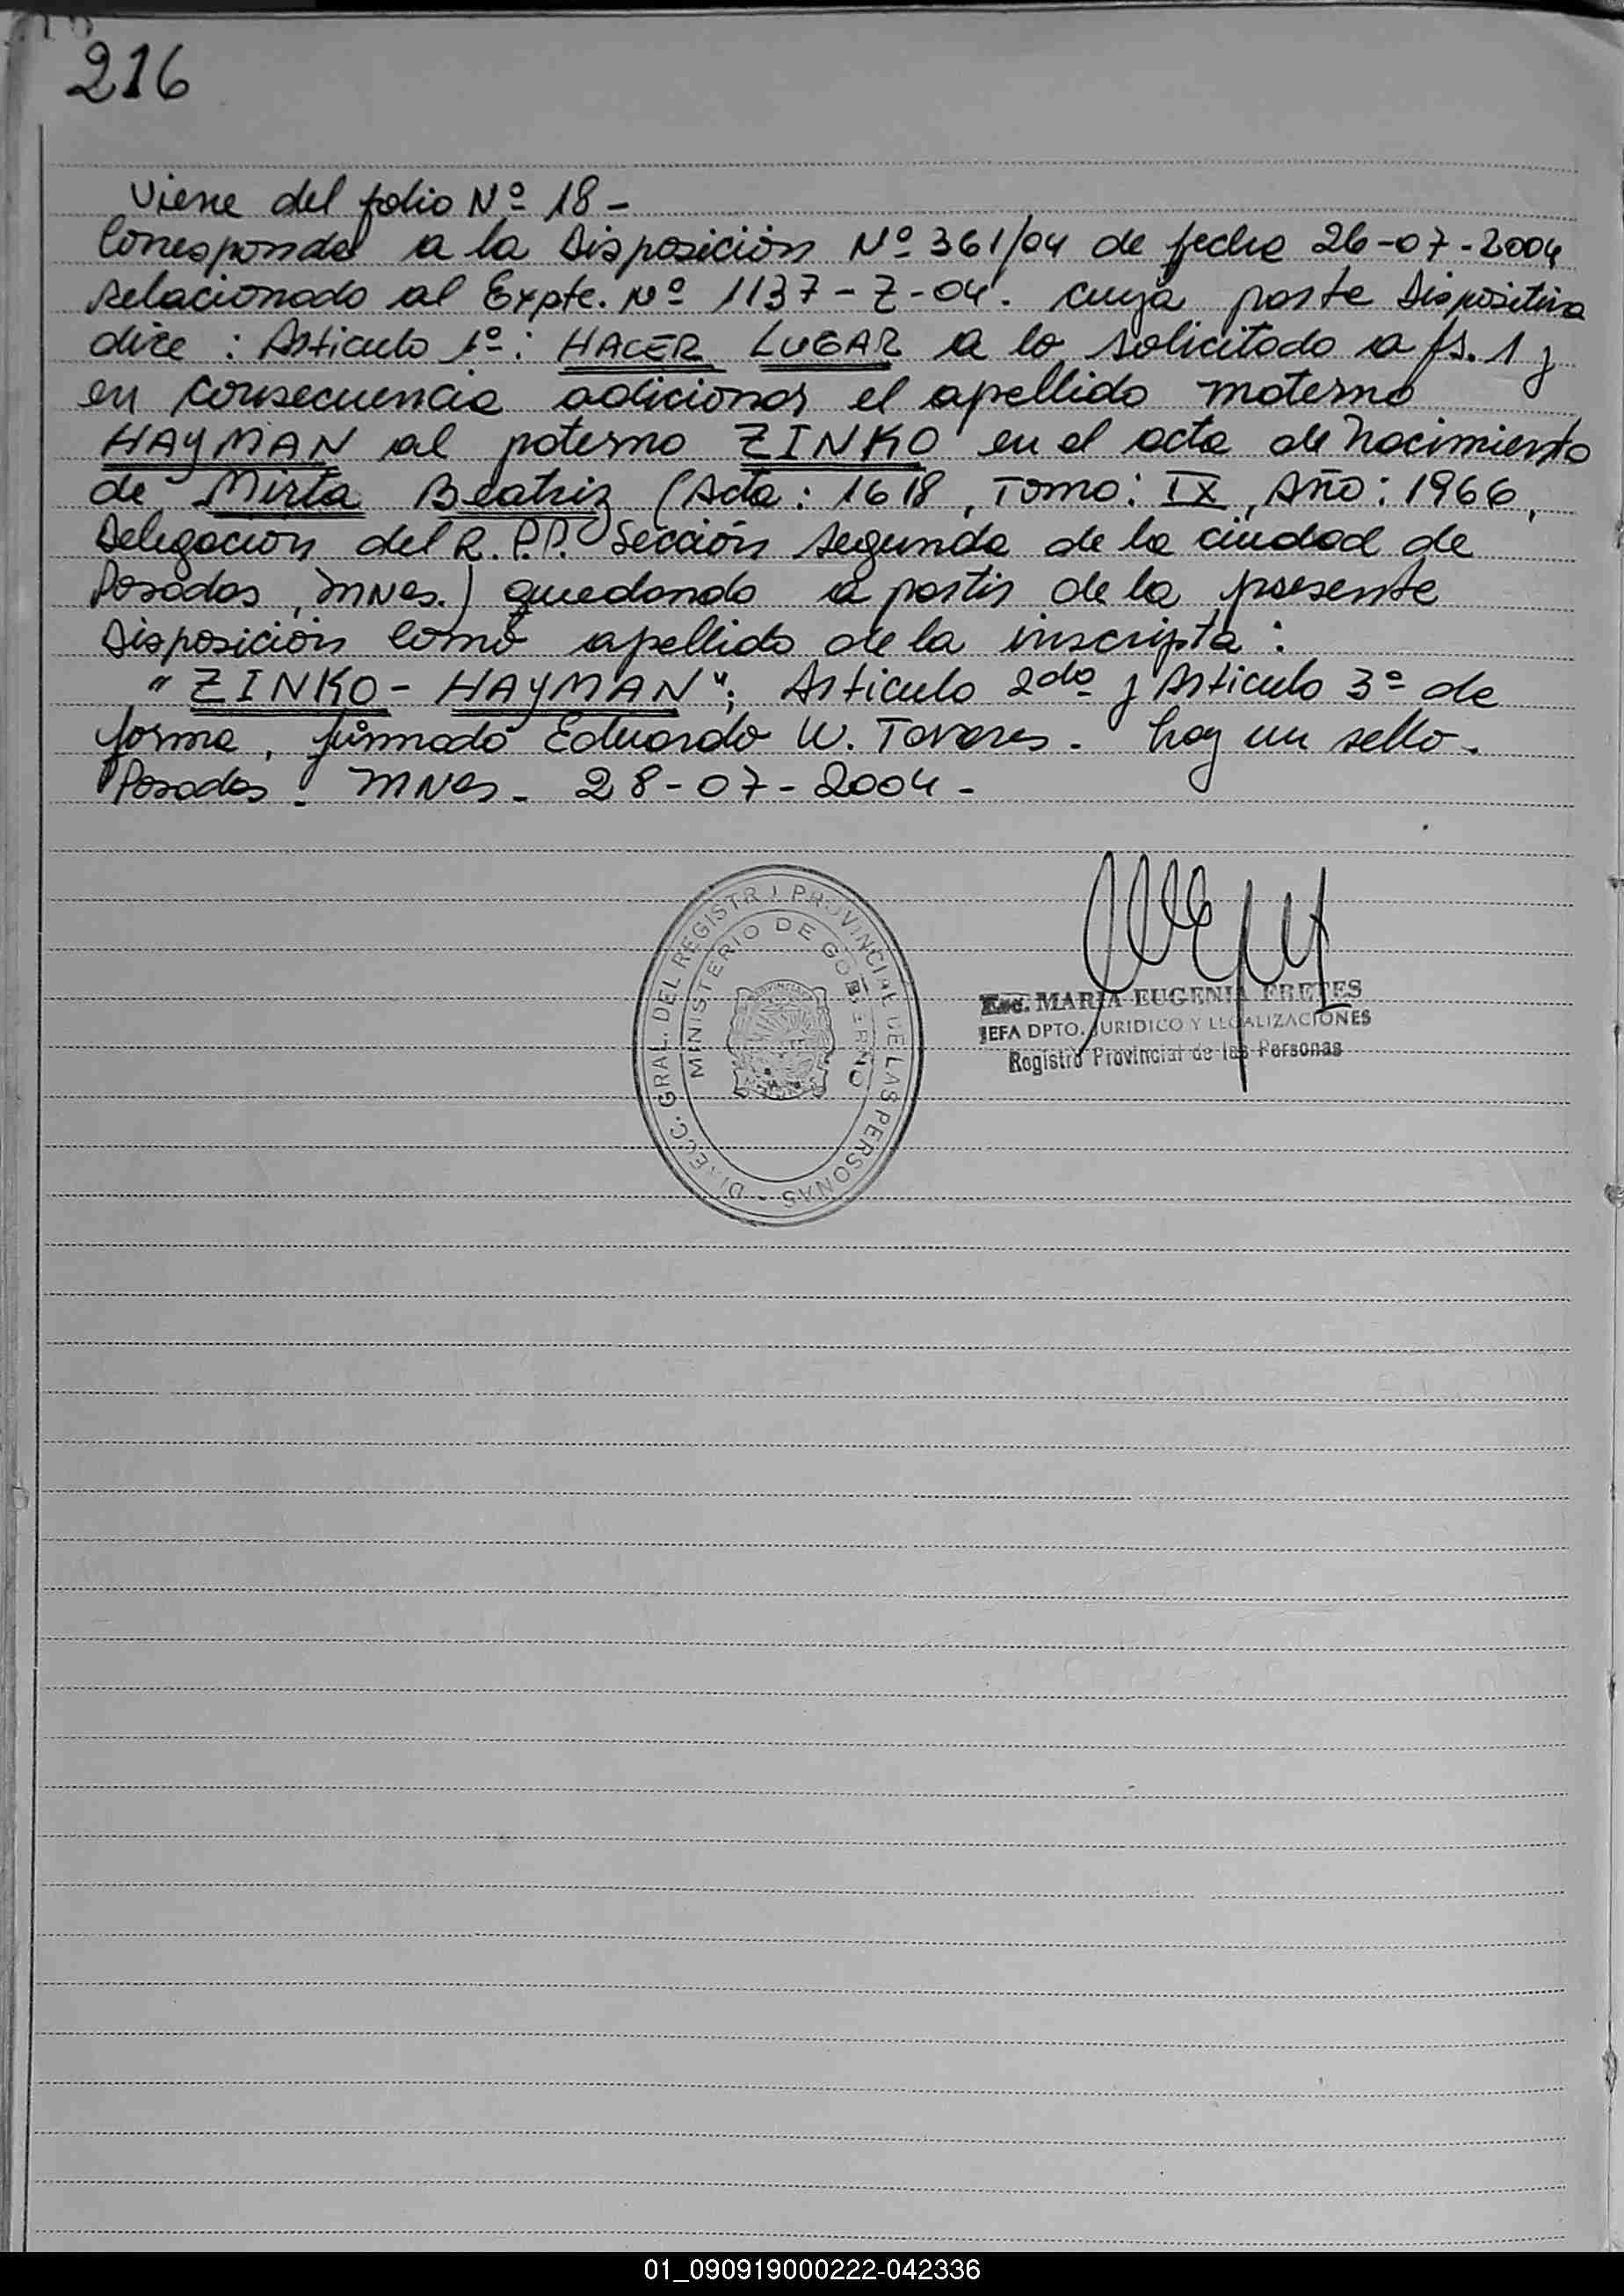 216
Viene del folio Nº 18 -
Corresponde a la Disposición Nº 361/04 de fecha 26-07-2004
relacionado al Expte. Nº 1137-Z-04. cuya parte dispositiva
dice : Articulo 1º: HACER LUGAR a lo solicitado a fs. 1 y
en consecuencia adicionar el apellido materno
HAYMAN al paterno ZINKO en el acta de nacimiento
de Mirta Beatriz (Acta: 1618, Tomo: IX, Año: 1966,
Delegación del R.P.P. Sección segunda de la ciudad de
Posadas, Mnes.) quedando a partir de la presente
Disposición como apellido de la inscripta :
"ZINKO - HAYMAN"; Articulo 2do y Articulo 3º de
forma, firmado Eduardo W. Tavares. hay un sello.
Posadas. Mnes. 28-07-2004 -
DIRECC. GRAL. DEL REGISTRO PROVINCIAL DE LAS PERSONAS -
MINISTERIO DE GOBIERNO
Esc. MARIA EUGENIA FRETES
JEFA DPTO. JURIDICO Y LEGALIZACIONES
Registro Provincial de las Personas
01_090919000222-042336